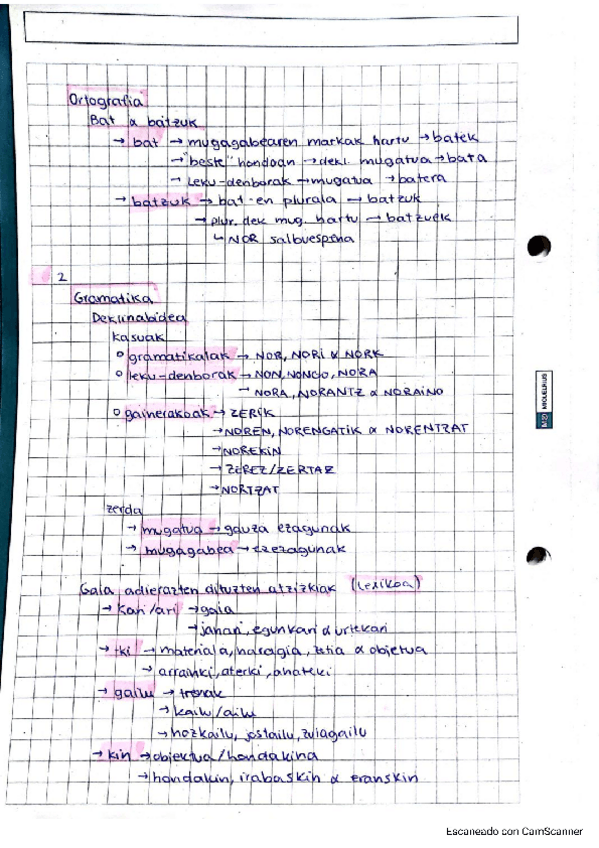 Ortografia
Bat & batzuk
→ bat → mugagabearen markak hartu → batek
→ "beste" ondoan → dekl. mugatua → bata
→ leku-denborak → mugatua → batera
→ batzuk → bat-en plurala → batzuk
→ plur. dek mug. hartu → batzuek
↳ NOR salbuespena
2
Gramatika
Deklinabidea
Kasuak
° gramatikalak → NOR, NORI & NORK
° leku-denborak → NON, NONGO, NORA
→ NORA, NORANTZ & NORAINO
° gainerakoak → ZERIK
→ NOREN, NORENGATIK & NORENTZAT
→ NOREKIN
→ ZEREZ/ZERTAZ
→ NORTZAT
zerda
→ mugatua → gauza ezagunak
→ mugagabea → ezezagunak
Gaia adierazten dituzten atzizkiak (Lexikoa)
→ kari/ari → gaia
→ janari, egunkari & urtekari
→ tki → materiala, haragia, zatia & objetua
→ arrainki, aterki, ahateki
→ gailu → tresnak
→ kailu/ailu
→ hozkailu, jostailu, zuiagailu
→ kin → objektua/hondakina
→ hondakin, irabaskin & eranskin
MIQUELRIUS
Escaneado con CamScanner